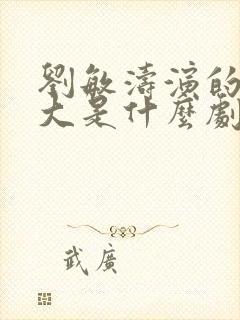 劉敏濤演的
大是什麼劇
武廣